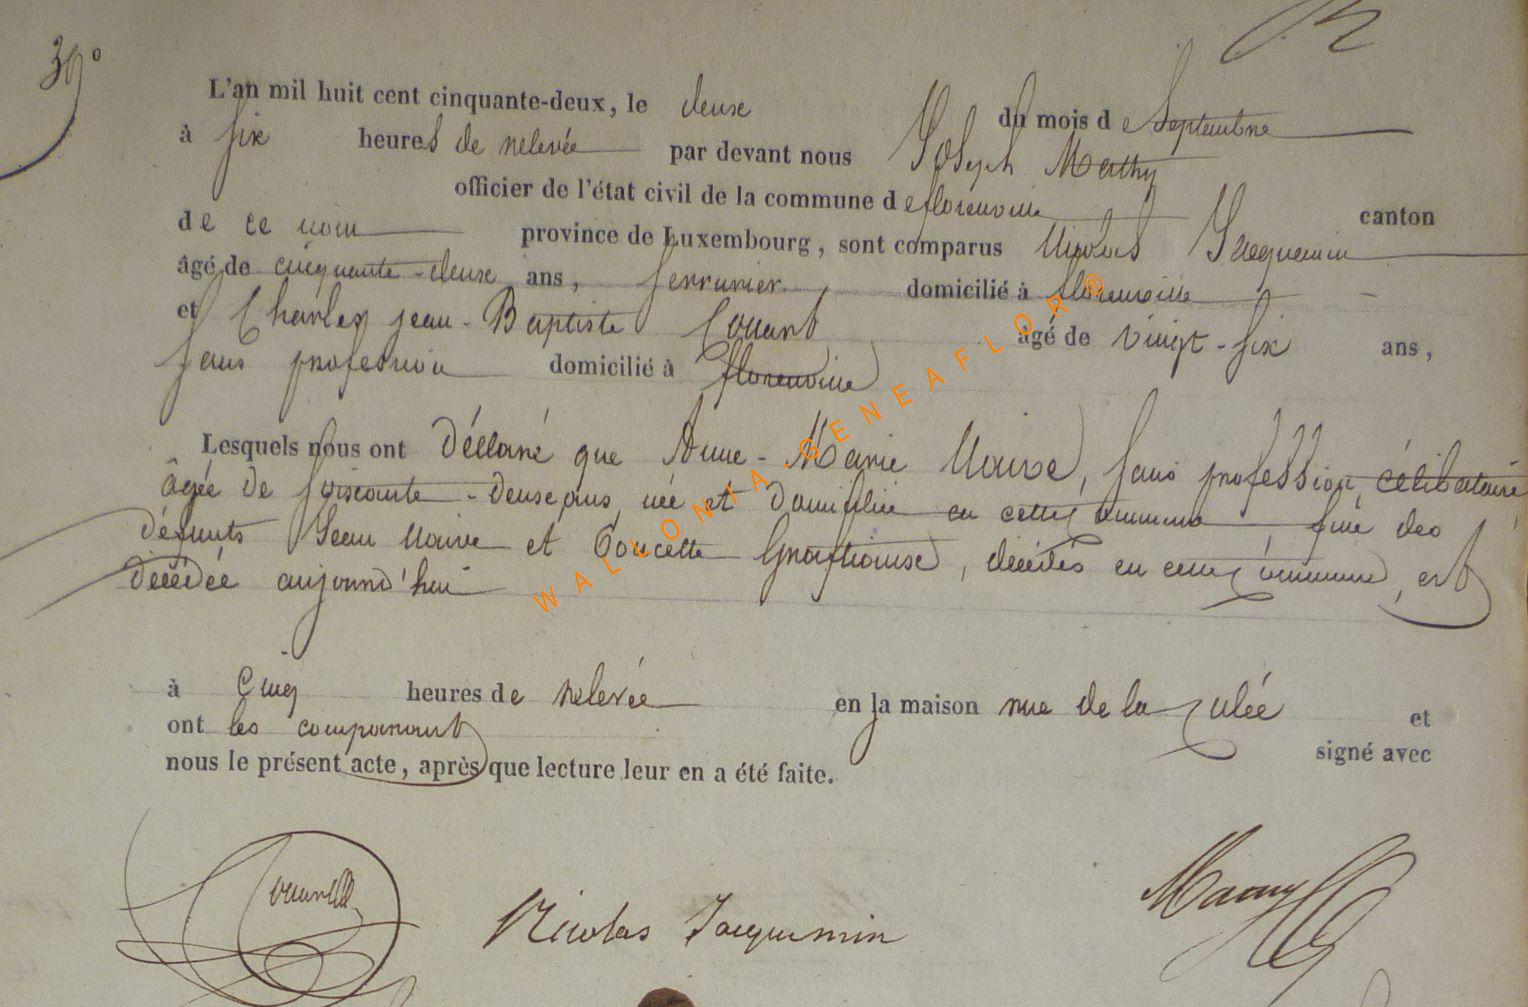 39°
L'an mil huit cent cinquante-deux, le deux du mois de Septembre
à six heures de relevée par devant nous Joseph Mathy
officier de l'état civil de la commune de florenville canton
de ce nom province de Luxembourg, sont comparus Nicolas Jacquemin
âgé de cinquante-deux ans, serrurier domicilié à florenville
et Charles jean-Baptiste Couant âgé de vingt-six ans,
sans profession domicilié à florenville
Lesquels nous ont Déclaré que Anne-Marie sans profession, célibataire
âgée de soixante-deux ans, née et domiciliée en cette commune, fille des
défunts Jean et décédés en cette commune, est
Décédée aujourd'hui
à cinq heures de relevée en la maison rue de la culée et
ont les comparants signé avec
nous le présent acte, après que lecture leur en a été faite.
Nicolas Jacquemin
WALLONIA.GENEAFLOR®